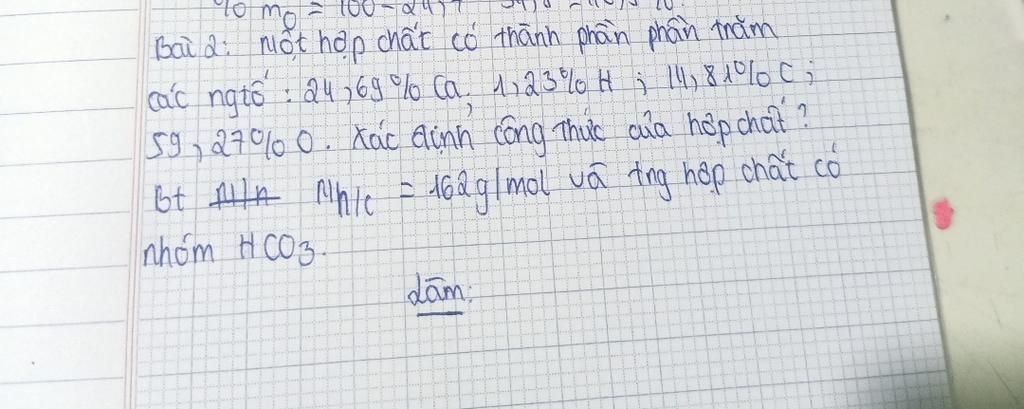 % mO = 100 - 24,7
Bài 2: Một hợp chất có thành phần phần trăm
các ngtố : 24,69% Ca, 1,23% H ; 14,81% C ;
59,27% O. Xác định công thức của hợp chất?
Bt Mh/c = 162g/mol và trg hợp chất có
nhóm HCO3.
Làm: